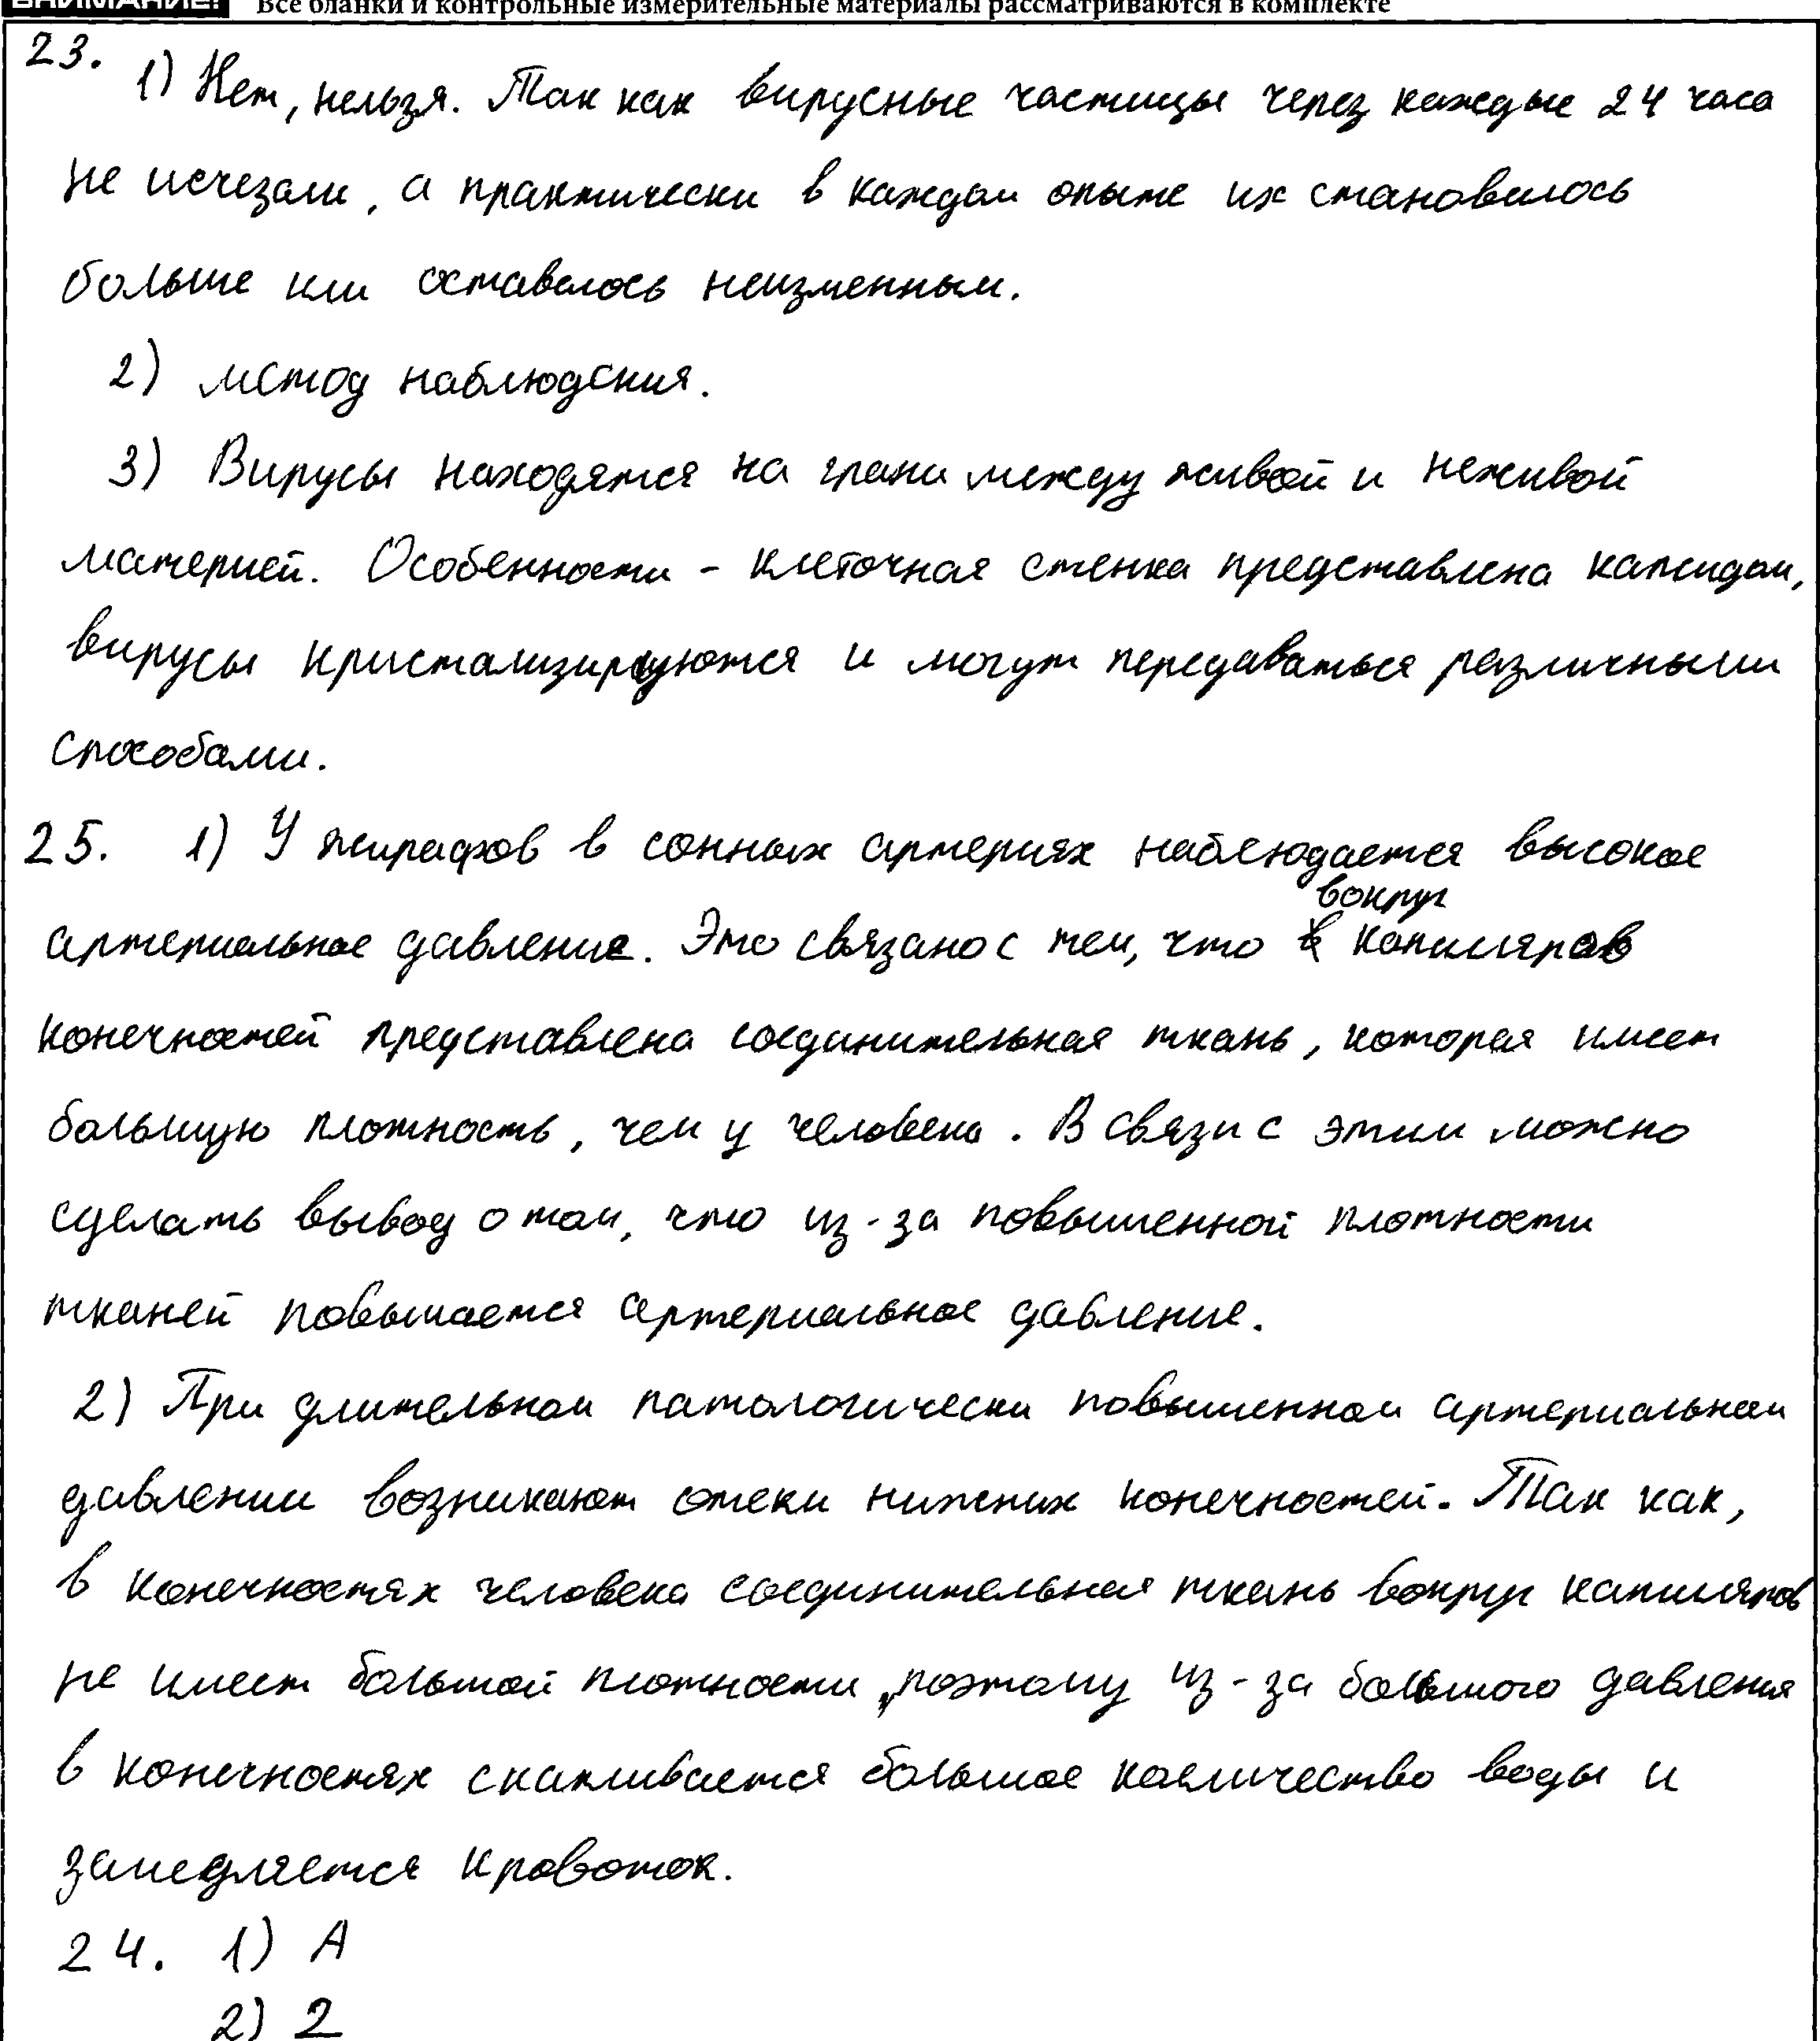 ВНИМАНИЕ! Все бланки и контрольные измерительные материалы рассматриваются в комплекте
23.
1) Нет, нельзя. Так как вирусные частицы через каждые 24 часа
не исчезали, а практически в каждом опыте их становилось
больше или оставалось неизменным.
2) метод наблюдения.
3) Вирусы находятся на грани между живой и неживой
материей. Особенности - клеточная стенка представлена капсидом,
вирусы кристализируются и могут передаваться различными
способами.
25. 1) У жирафов в сонных артериях наблюдается высокое
вокруг
артериальное давление. Это связано с тем, что капиляров
конечностей представлена соединительная ткань, которая имеет
большую плотность, чем у человека. В связи с этим можно
сделать вывод о том, что из-за повышенной плотности
тканей повышается артериальное давление.
2) При длительном патологически повышенном артериальном
давлении возникают отеки нижних конечностей. Так как,
в конечностях человека соединительная ткань вокруг капиляров
не имеет большой плотности, поэтому из-за большого давления
в конечностях скапливается большое количество воды и
замедляется кровоток.
24. 1) А
2) 2